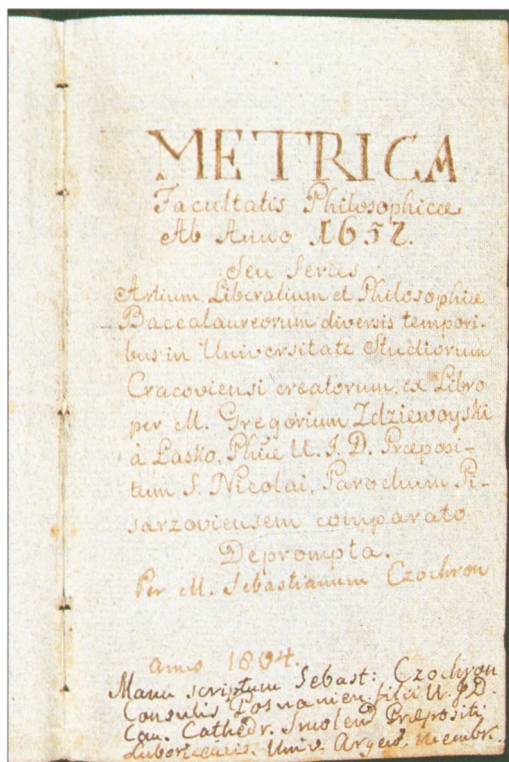 METRICA
Facultatis Philosophicæ
Ab Anno 1652.
Seu Series
Artium Liberalium et Philosophiæ
Baccalaureorum diversis tempori-
bus in Universitate Studiorum
Cracoviensi creatorum, ex Libro
per M. Gregorium Zdziewoyski
à Lasko, Phiæ U. J. D. Præposi-
tum S. Nicolai, Parochum Pi-
sarzoviensem comparato
Deprompta.
Per M. Sebastianum Czochron
anno 1804.
Manu scriptum Sebast: Czochron
Consulis Posnanien. filii U. J. D.
Can. Cathedr. Smolens. Præpositi
Univ. membr.